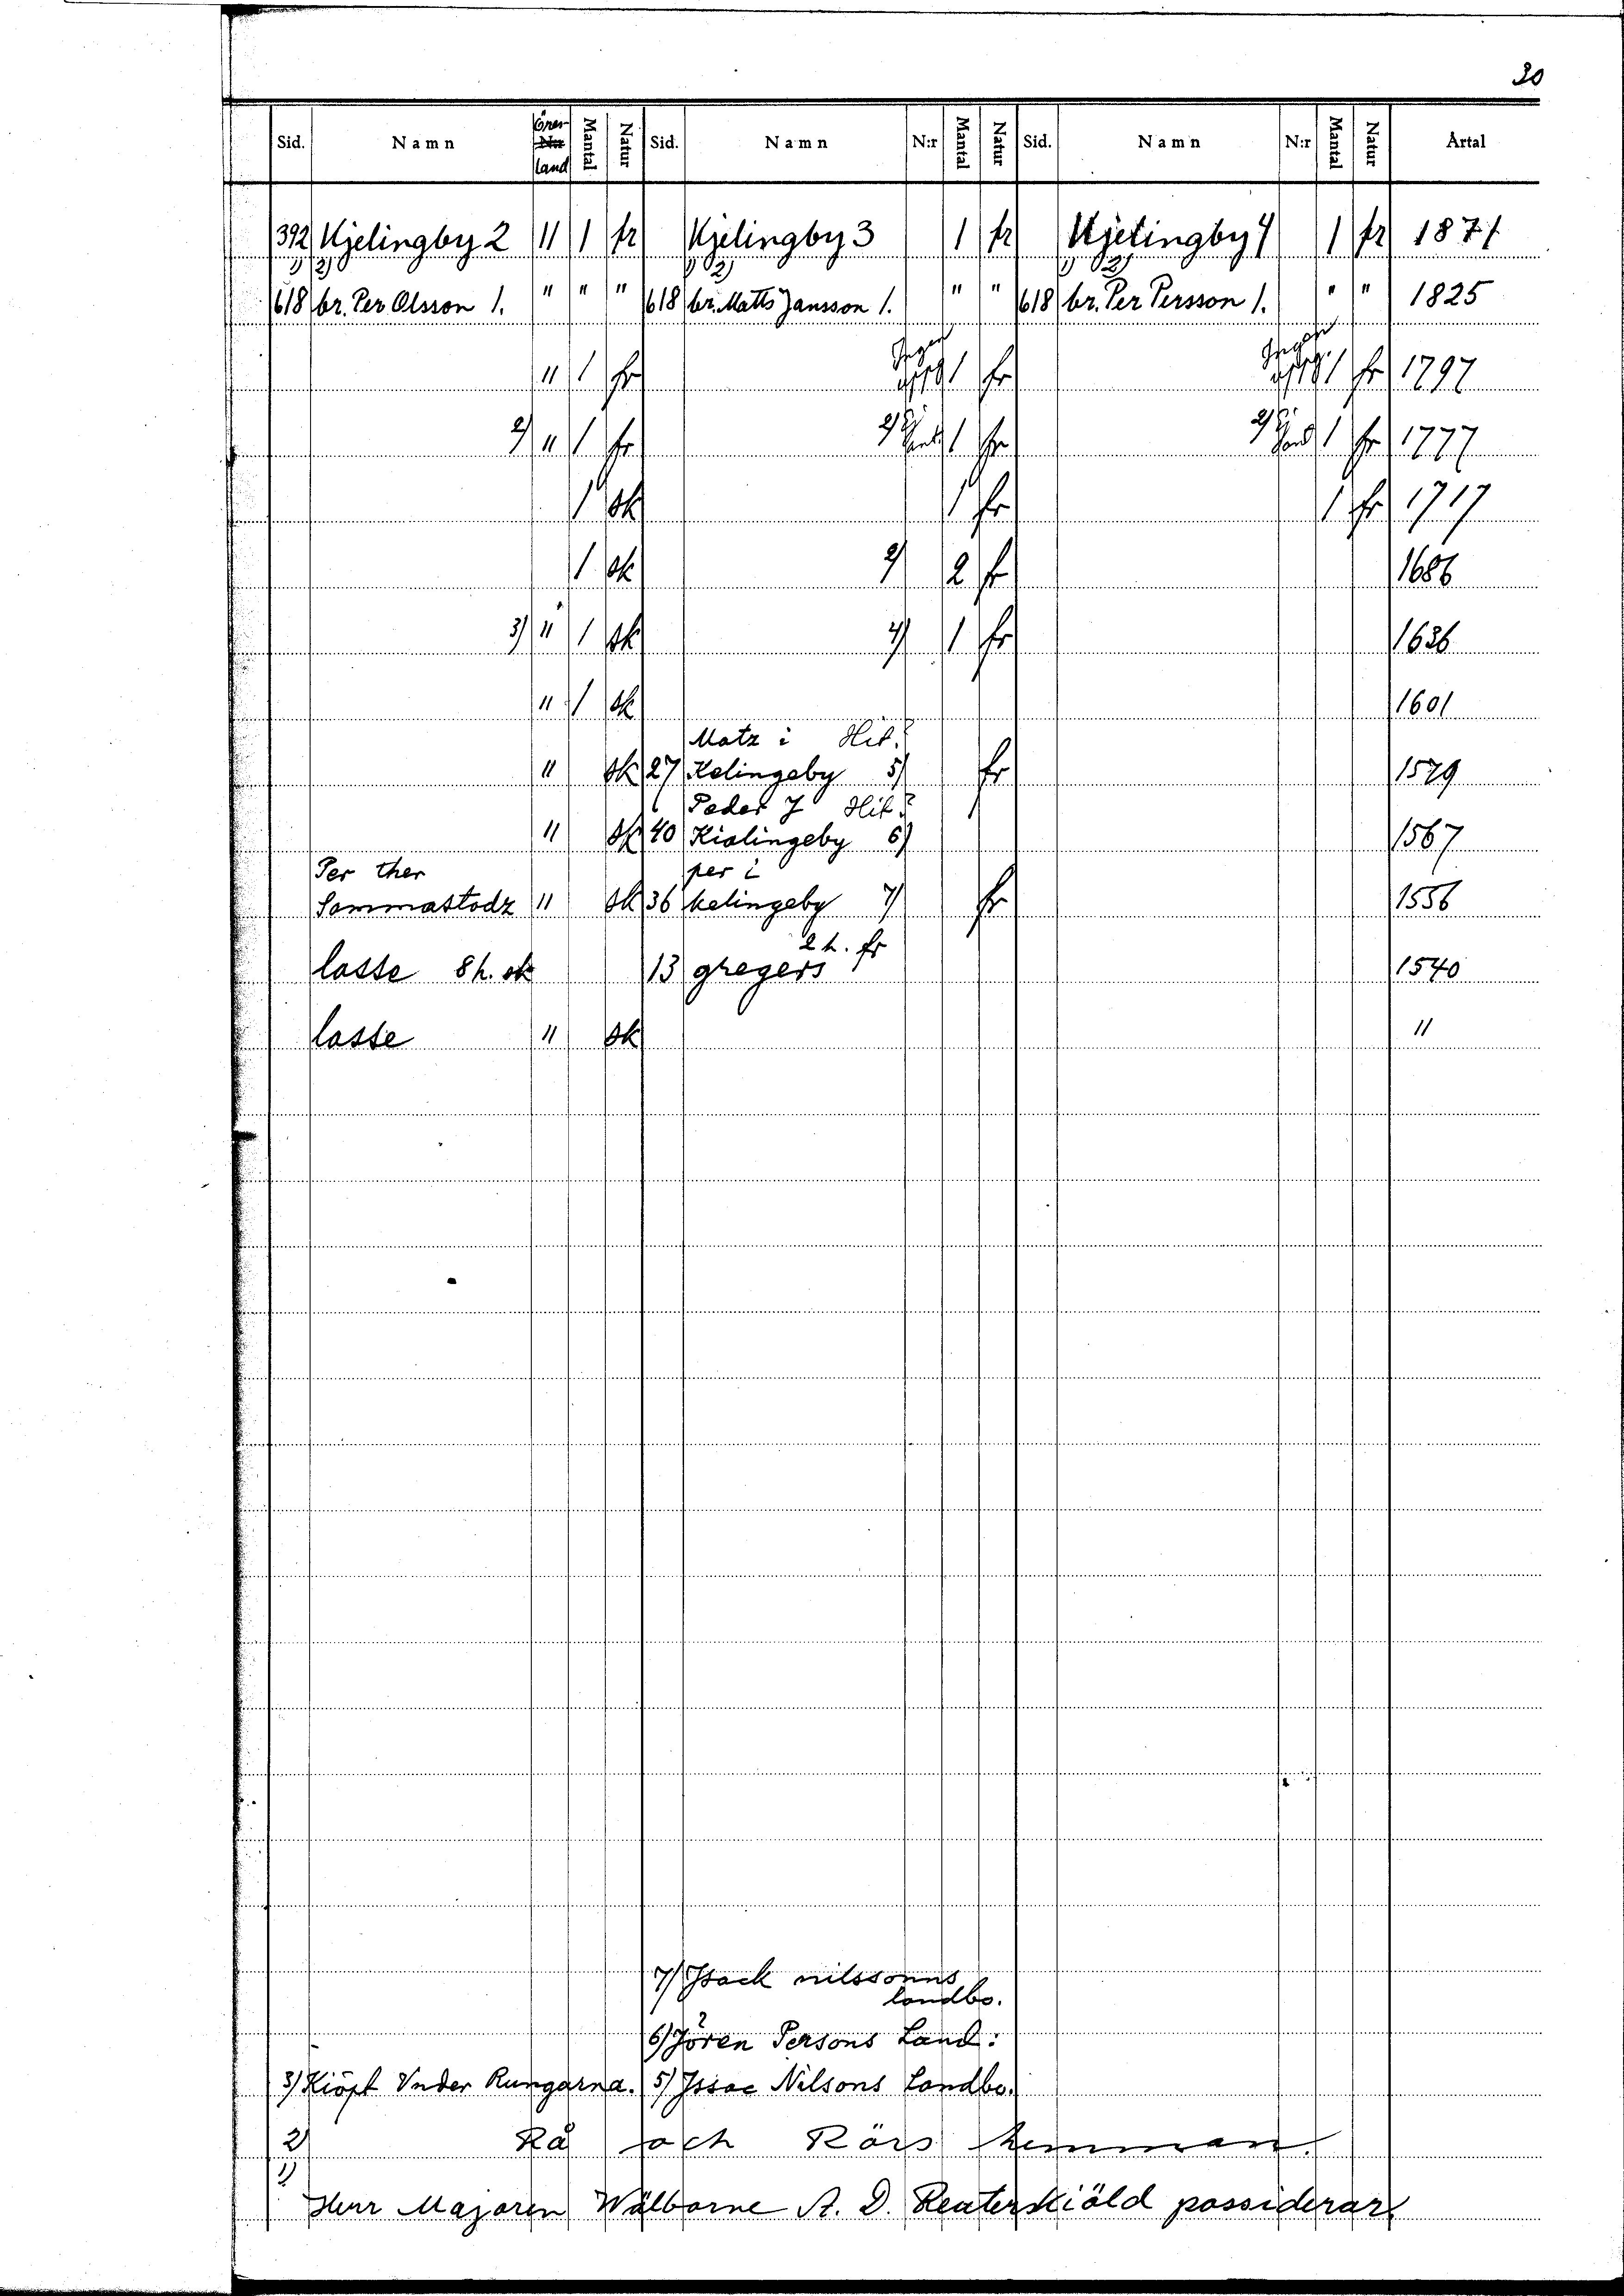 30
Sid. Namn Öres- N:r land Mantal Natur Sid. Namn N:r Mantal Natur Sid. Namn N:r Mantal Natur Årtal
392 Kjelingby 2 11 1 fr Kjelingby 3 1 fr Kjelingby 4 1 fr 1871
1) 2) 1) 2) 1) 2)
618 br. Per Olsson 1. " " " 618 br. Matts Jansson 1. " " 618 br. Per Persson 1. " " 1825
11 1 fr 1 fr 1 fr 1797
2) 11 1 fr 2) 1 fr 2) 1 fr 1777
1 sk 1 fr 1 fr 1717
1 sk 2) 2 fr 1686
3) 11 1 sk 4) 1 fr 1636
11 1 sk 1601
Matz i Hit?
11 sk 27 Kelingeby 5) fr 1579
Peder J Hit?
11 sk 40 Kialingeby 6) 1567
Per ther per i
Sammastodz 11 sk 36 kelingeby 7) fr 1556
2 h. fr
lasse 8 h. sk 13 gregers 1540
lasse 11 sk "
7) Jsack nilssonns
landbo.
6) Jören Persons Land:
3) Kiöpt Vnder Rungarna. 5) Jssac Nilsons Landbo.
2) Rå och Rörs hemman.
1)
Herr Majoren Wälborne A. D. Reuterskiöld possiderar